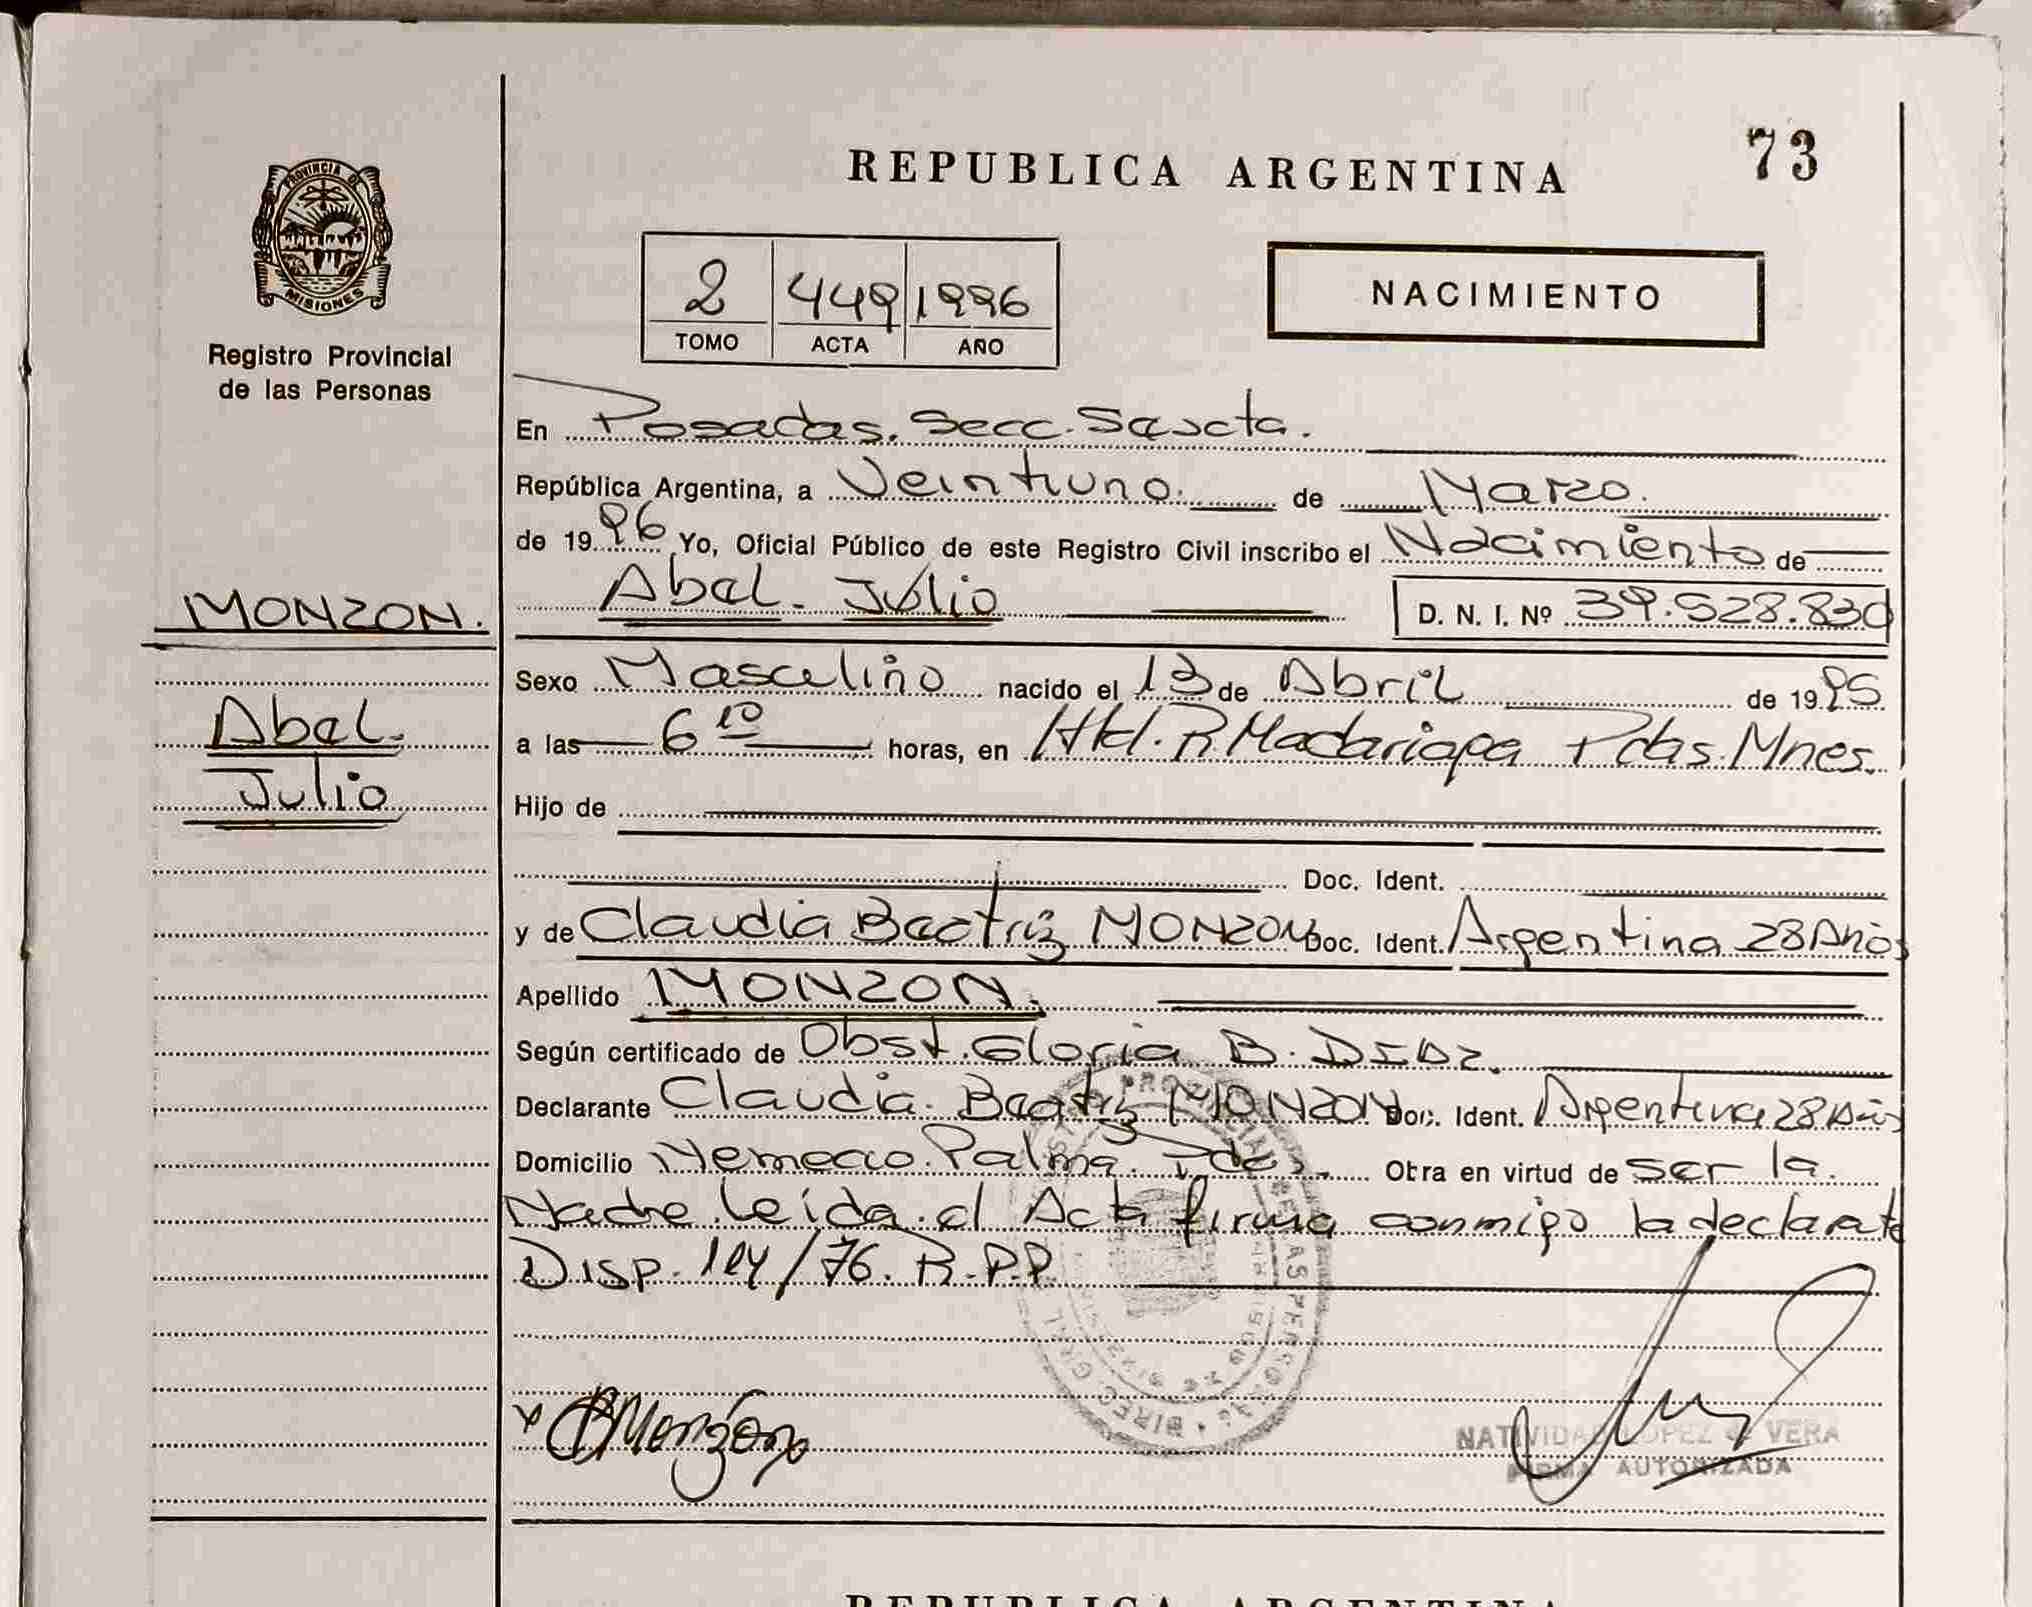 73
REPUBLICA ARGENTINA
PROVINCIA DE
MISIONES
Registro Provincial
de las Personas
2 449 1996
TOMO ACTA AÑO
NACIMIENTO
En Posadas. Secc. Sexta.
República Argentina, a Veintiuno. de Marzo.
de 1996 Yo, Oficial Público de este Registro Civil inscribo el Nacimiento de
Abel. Julio D. N. I. Nº 39.528.830
MONZON.
Abel.
Julio
Sexo Masculino nacido el 13 de Abril de 1995.
a las 6 10 horas, en Htal. R. Madariaga Pdas. Mnes.
Hijo de
Doc. Ident.
y de Claudia Beatriz MONZON Doc. Ident. Argentina 28 Años
Apellido MONZON.
Según certificado de Obst. Gloria B. DIAZ.
Declarante Claudia. Beatriz MONZON Doc. Ident. Argentina 28 Años
Domicilio Palma. Pdas. Obra en virtud de ser la.
Madre. Leida. el Acta firma conmigo la declarante
Disp. 124/76. R.P.P.
BMonzón
NATIVIDAD LOPEZ de VERA
FIRMA AUTORIZADA
REPUBLICA ARGENTINA